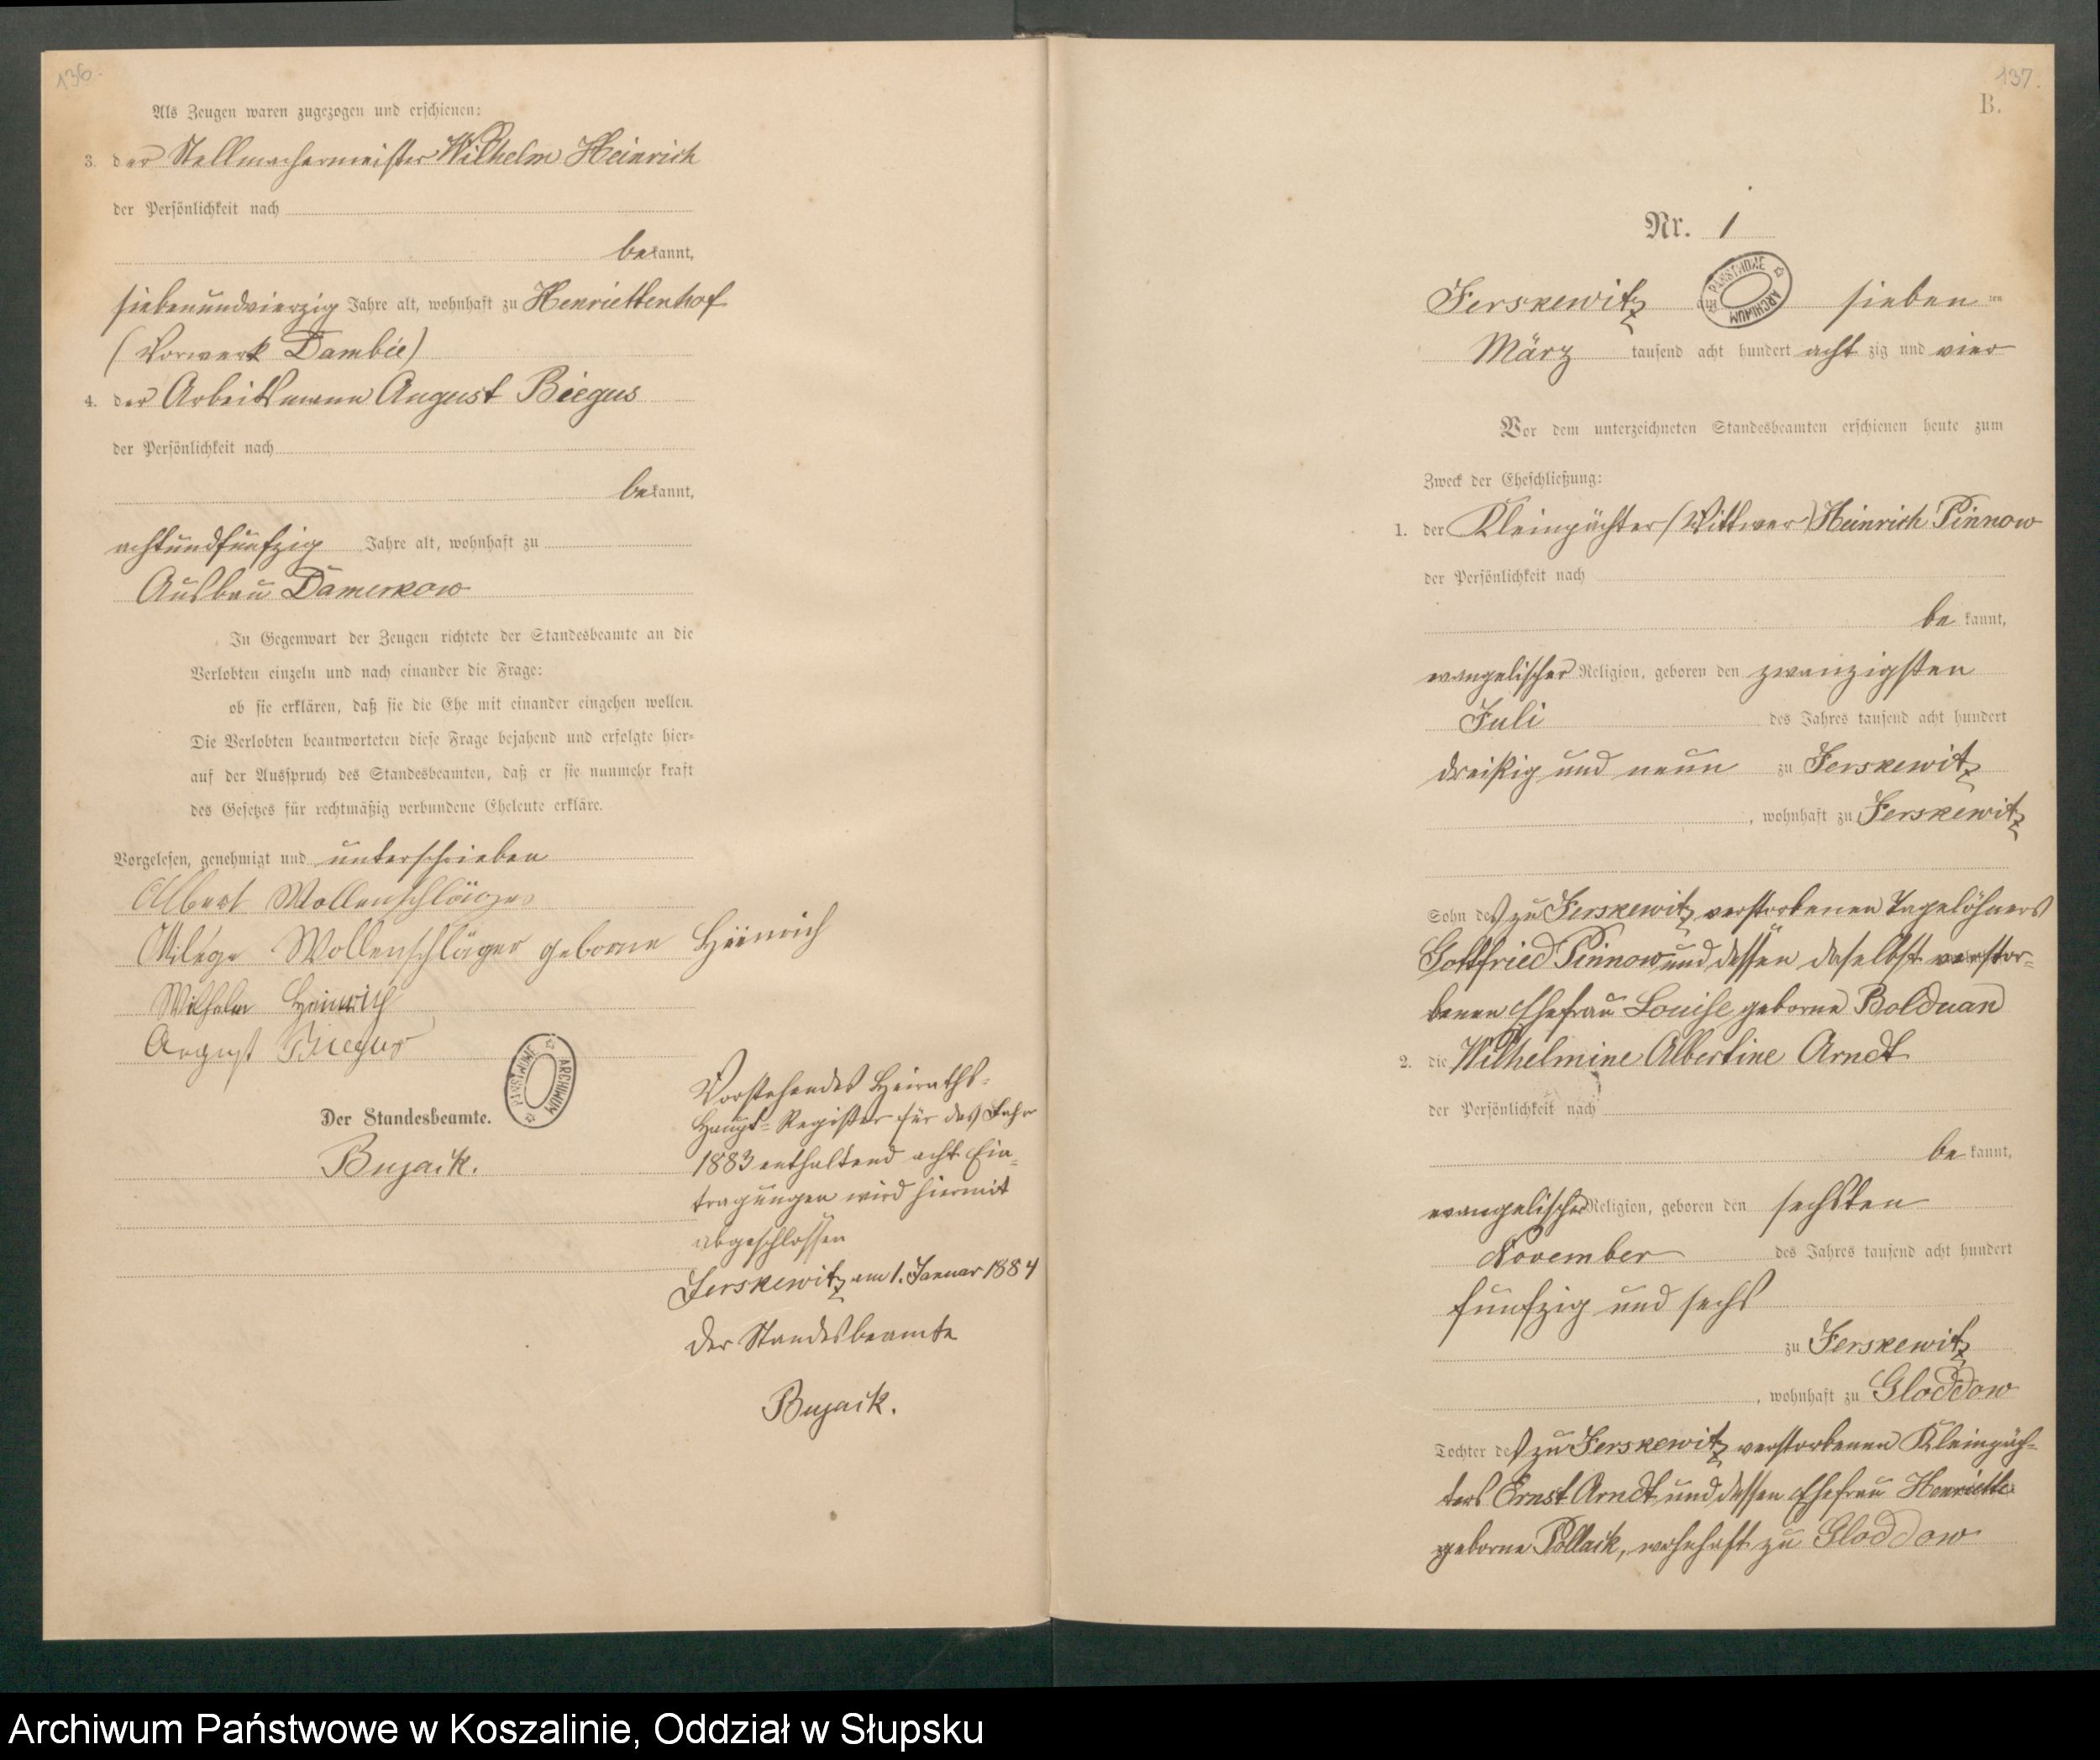 136.
Als Zeugen waren zugezogen und erschienen:
3. der Stellmachermeister Wilhelm Heinrich
der Persönlichkeit nach
bekannt,
siebenundvierzig Jahre alt, wohnhaft zu Henriettenhof
(Vorwerk Dambée)
4. der Arbeitsmann August Biegus
der Persönlichkeit nach
bekannt,
achtundfünfzig Jahre alt, wohnhaft zu
Ausbau Damerkow
In Gegenwart der Zeugen richtete der Standesbeamte an die
Verlobten einzeln und nach einander die Frage:
ob sie erklären, daß sie die Ehe mit einander eingehen wollen.
Die Verlobten beantworteten diese Frage bejahend und erfolgte hier-
auf der Ausspruch des Standesbeamten, daß er sie nunmehr kraft
des Gesetzes für rechtmäßig verbundene Eheleute erkläre.
Vorgelesen, genehmigt und unterschrieben
Albert Wollenschläger
Wollenschläger geborne Heinrich
Wilhelm Heinrich
August Biegus
ARCHIWUM PAŃSTWOWE
Der Standesbeamte.
Bujack.
Vorstehendes Heiraths-
Haupt-Register für das Jahr
1883 enthaltend acht Ein-
tragungen wird hiermit
abgeschlossen
Jerskewitz am 1. Januar 1884
Der Standesbeamte
Bujack.
137.
B.
Nr. 1
Jerskewitz am sieben ten
ARCHIWUM PAŃSTWOWE
März tausend acht hundert acht zig und vier
Vor dem unterzeichneten Standesbeamten erschienen heute zum
Zweck der Eheschließung:
1. der Kleinpächter (Wittwer) Heinrich Pinnow
der Persönlichkeit nach
be kannt,
evangelischer Religion, geboren den zwanzigsten
Juli des Jahres tausend acht hundert
dreißig und neun zu Jerskewitz
, wohnhaft zu Jerskewitz
Sohn des zu Jerskewitz verstorbenen Tagelöhners
Gottfried Pinnow und dessen daselbst verstor-
benen Ehefrau Louise geborne Bolduan
2. die Wilhelmine Albertine Arndt
der Persönlichkeit nach
be kannt,
evangelischer Religion, geboren den sechsten
November des Jahres tausend acht hundert
fünfzig und sechs
zu Jerskewitz
, wohnhaft zu Gloddow
Tochter des zu Jerskewitz verstorbenen Kleinpäch-
ters Ernst Arndt und dessen Ehefrau Henriette
geborne Pollack, wohnhaft zu Gloddow
Archiwum Państwowe w Koszalinie, Oddział w Słupsku